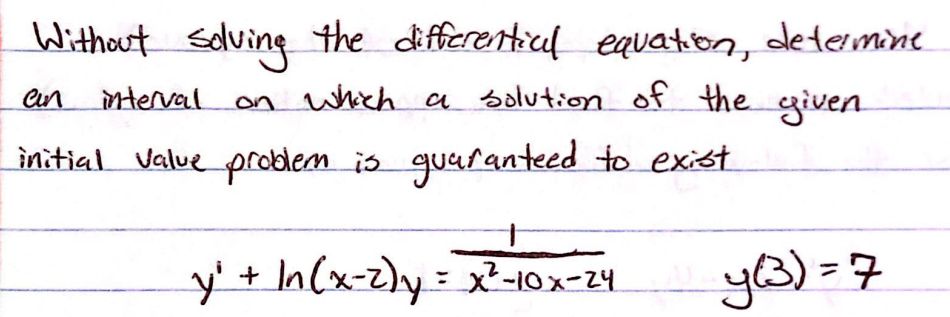 Without solving the differential equation, determine
an interval on which a solution of the given
initial value problem is guaranteed to exist
y' + ln(x-2)y = 1/(x²-10x-24) y(3) = 7